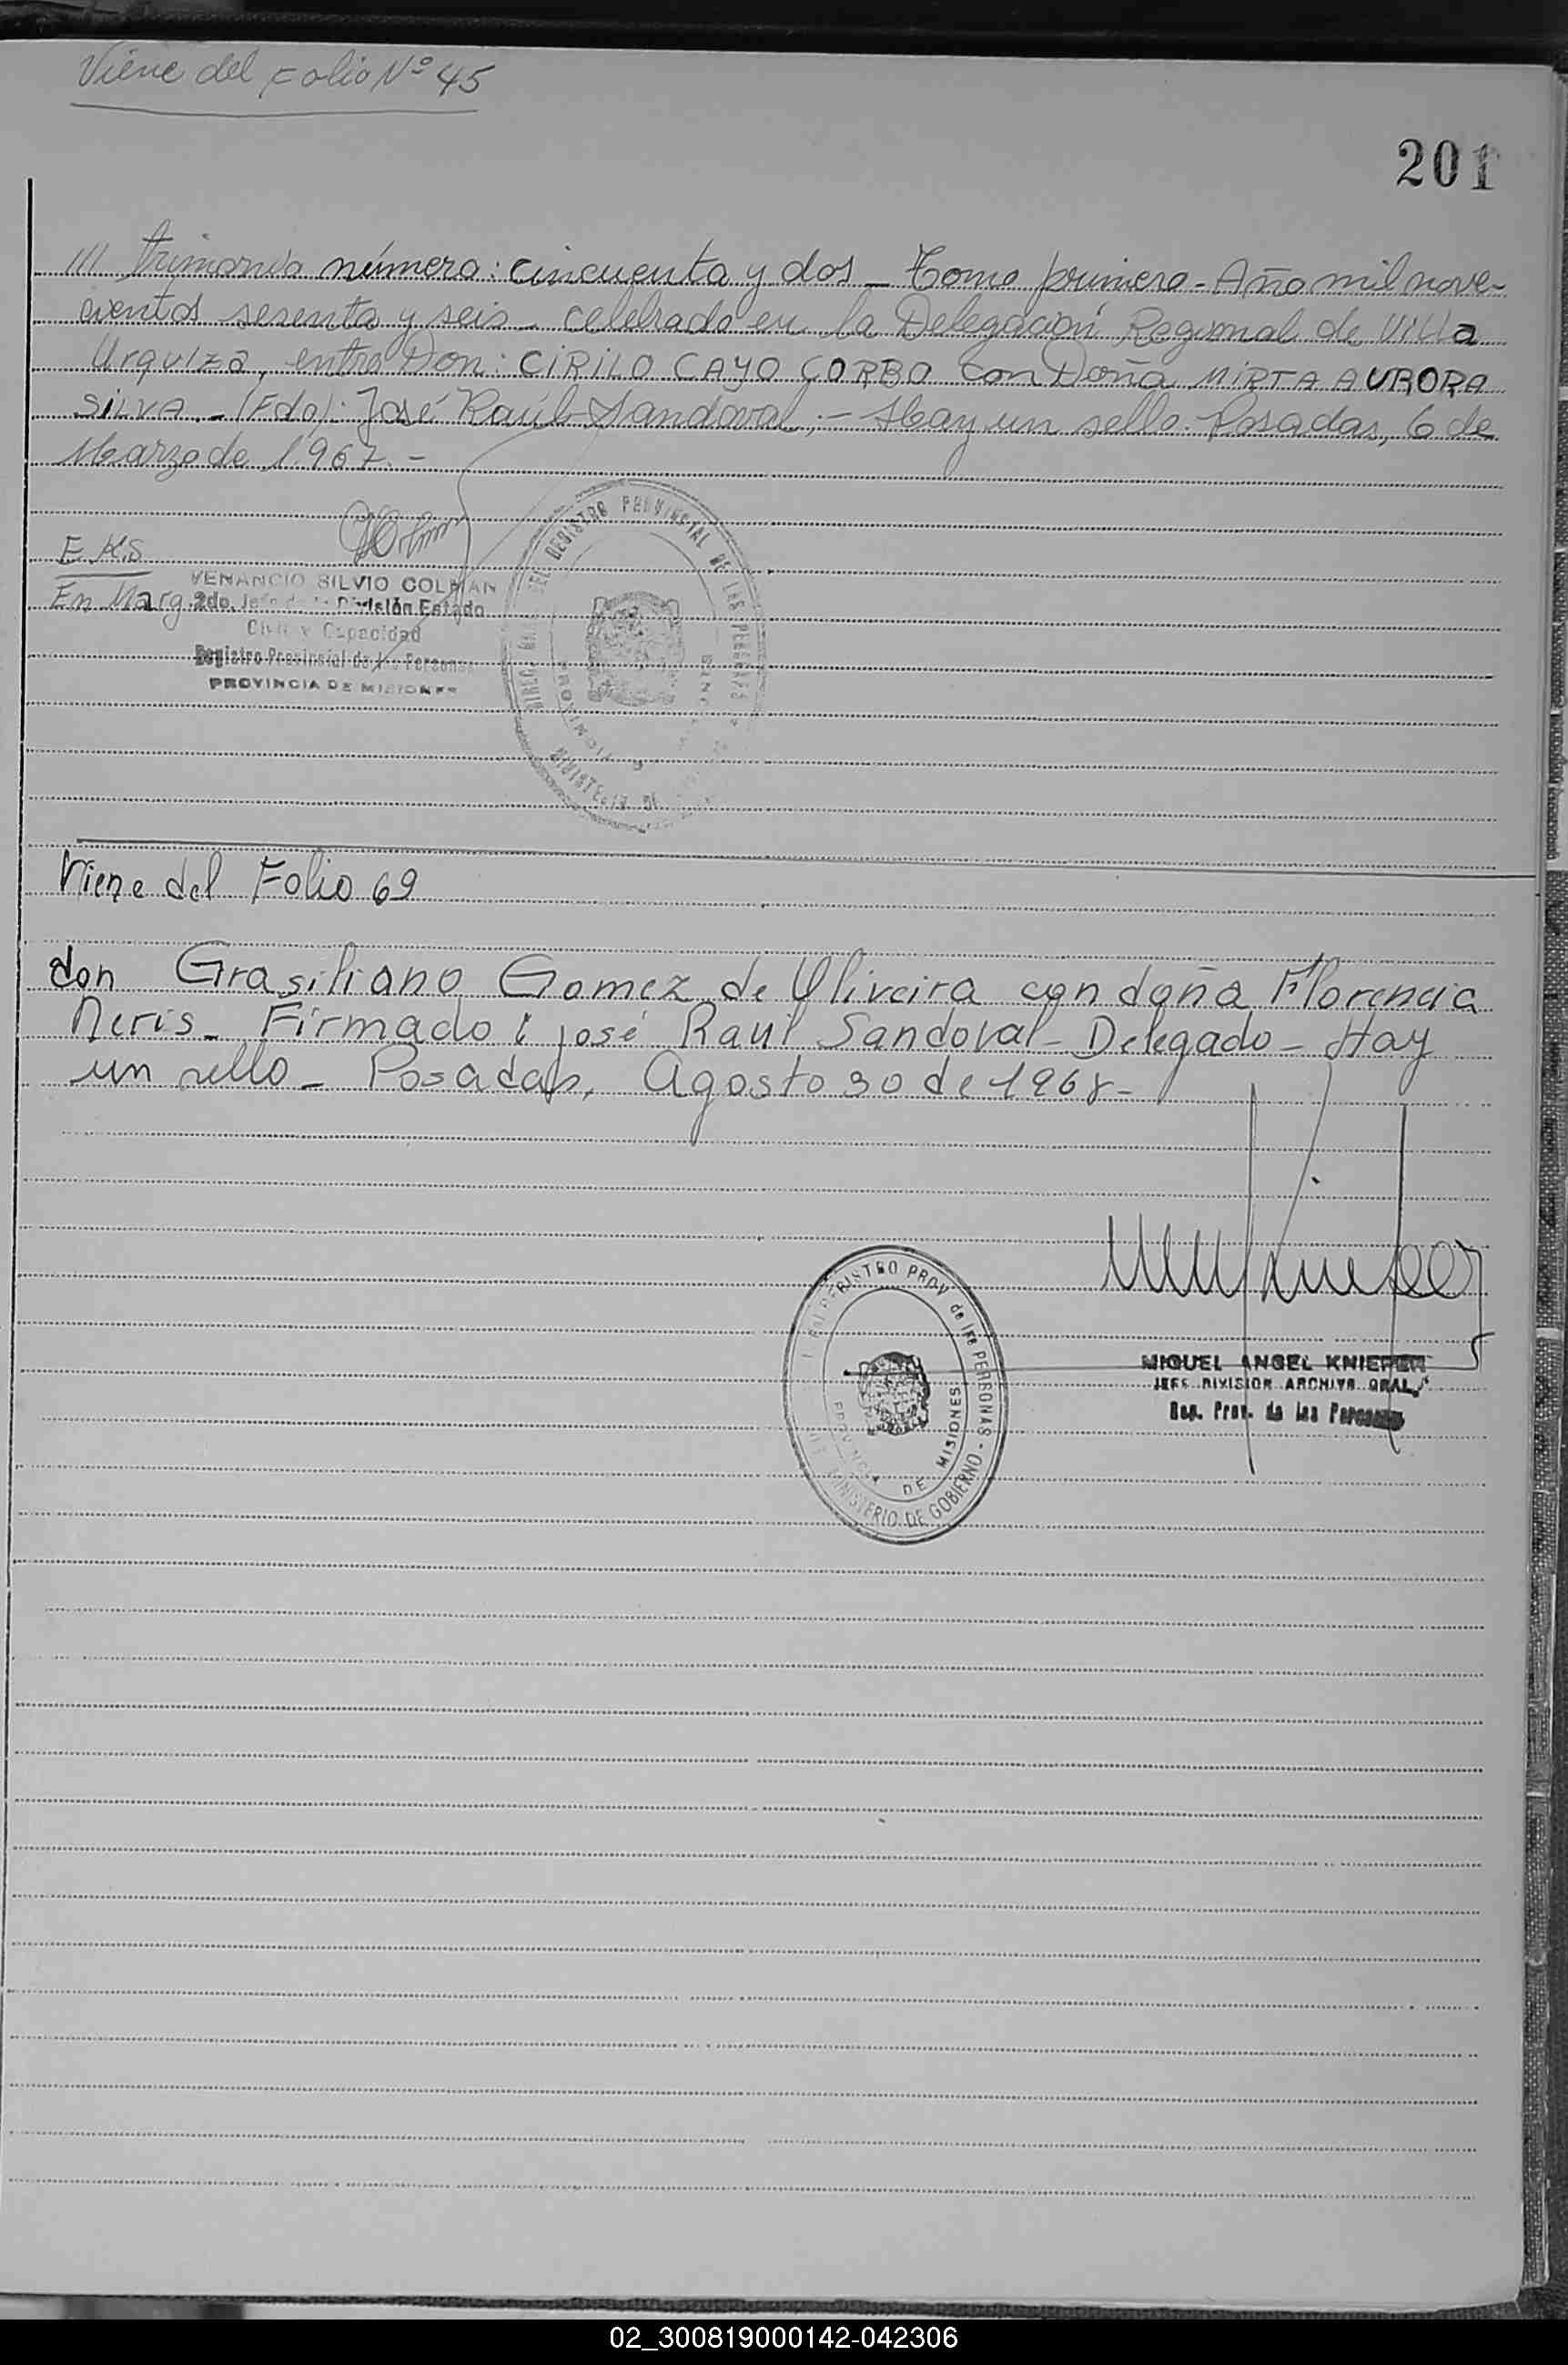 Viene del Folio Nº 45
201
/// trimonio número: cincuenta y dos - Tomo primero - Año mil nove-
cientos sesenta y seis - celebrado en la Delegación Regional de Villa
Urquiza, entre Don: CIRILO CAYO CORBO con Doña MIRTA AURORA
SILVA. - (Fdo): José Raúl Sandoval, - Hay un sello. Posadas, 6 de
Marzo de 1.967. -
E.K.S
En Marg.
VENANCIO SILVIO COLMAN
2do. Jefe de la División Estado
Civil y Capacidad
Registro Provincial de las Personas
PROVINCIA DE MISIONES
REGISTRO PROVINCIAL DE LAS PERSONAS
Viene del Folio 69
don Grasiliano Gomez de Oliveira con doña Florencia
Neris - Firmado: José Raul Sandoval - Delegado - Hay
un sello - Posadas, Agosto 30 de 1968 -
REGISTRO PROV de las PERSONAS - MINISTERIO DE GOBIERNO
PROVINCIA DE MISIONES
MIGUEL ANGEL KNIEPER
JEFE DIVISION ARCHIVO GRAL.
Reg. Prov. de las Personas
02_300819000142-042306